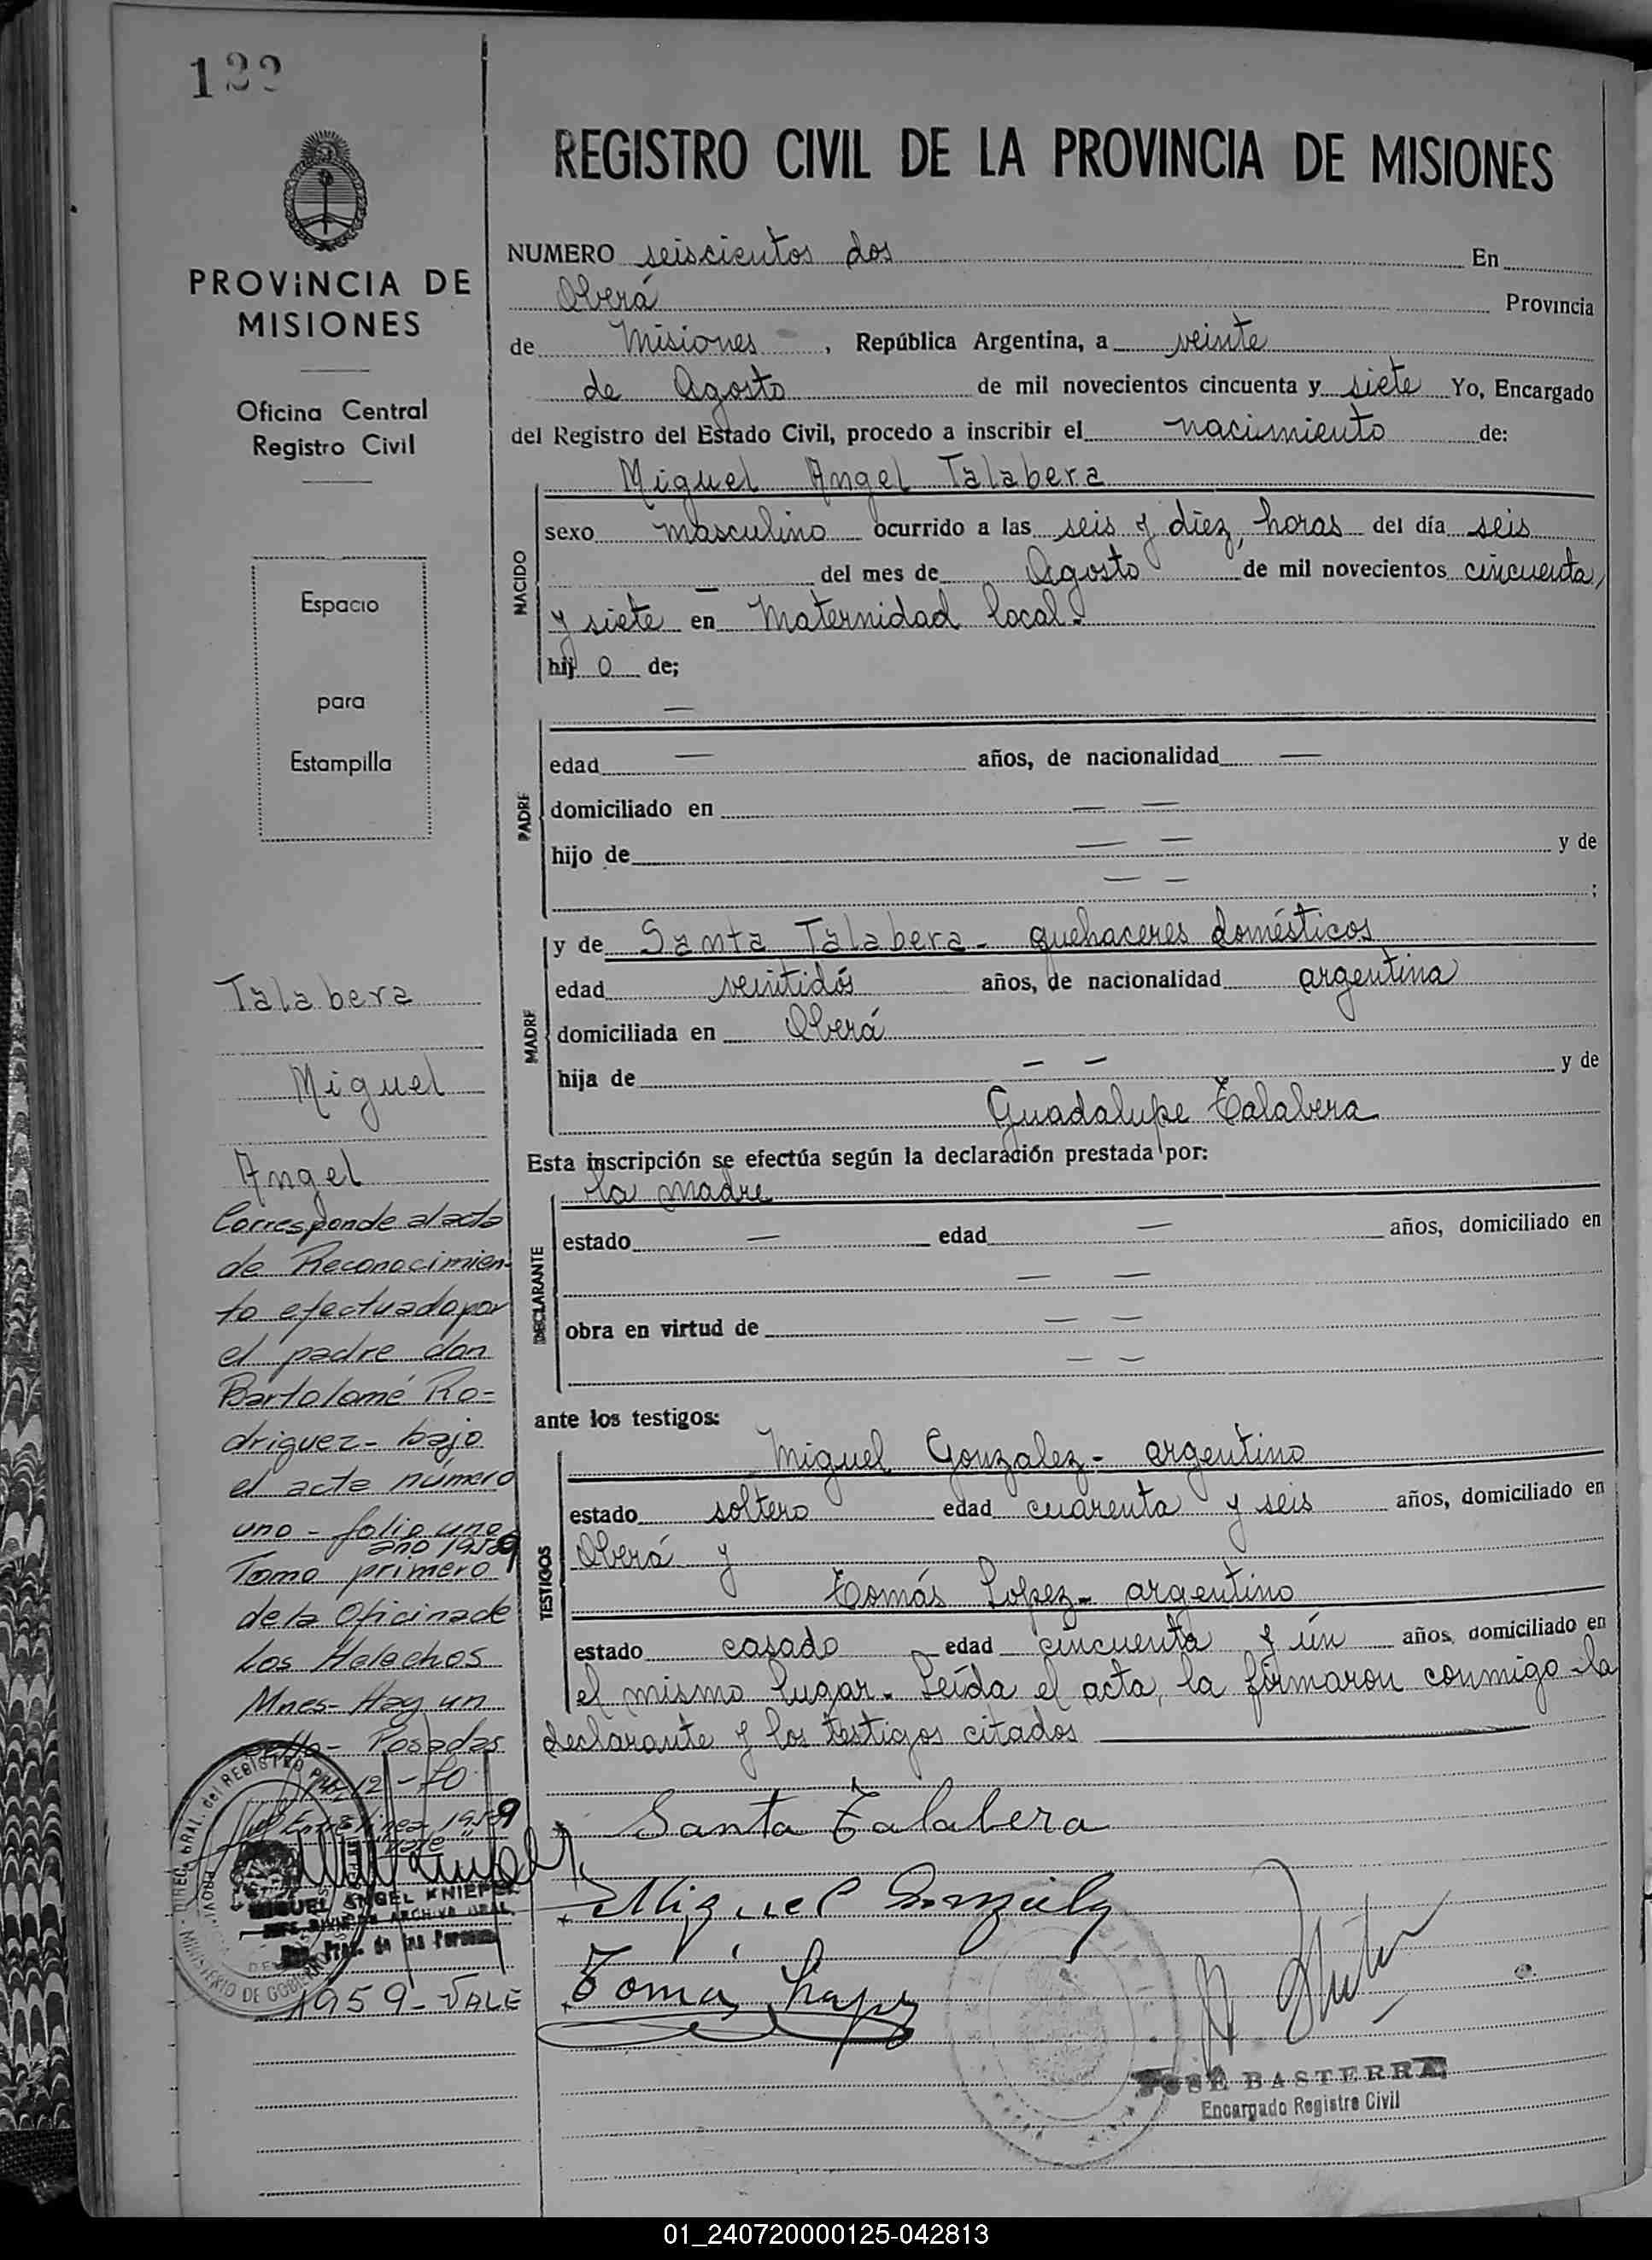 122
PROVINCIA DE
MISIONES
Oficina Central
Registro Civil
Espacio
para
Estampilla
REGISTRO CIVIL DE LA PROVINCIA DE MISIONES
NUMERO seiscientos dos En
Oberá Provincia
de Misiones, República Argentina, a veinte
de Agosto de mil novecientos cincuenta y siete Yo, Encargado
del Registro del Estado Civil, procedo a inscribir el nacimiento de:
NACIDO
Miguel Angel Talabera
sexo masculino ocurrido a las seis y diez, horas del día seis
— del mes de Agosto de mil novecientos cincuenta
y siete en Maternidad local.
hij o de;
PADRE
—
edad — años, de nacionalidad —
domiciliado en — —
hijo de — — y de
— — ;
MADRE
y de Santa Talabera - quehaceres domésticos
edad veintidós años, de nacionalidad argentina
domiciliada en Oberá
hija de — — y de
Guadalupe Talabera
Esta inscripción se efectúa según la declaración prestada por:
DECLARANTE
la madre
estado — edad — años, domiciliado en
— —
obra en virtud de — —
— —
ante los testigos:
TESTIGOS
Miguel Gonzalez - argentino
estado soltero edad cuarenta y seis años, domiciliado en
Oberá y
Tomás Lopez - argentino
estado casado edad cincuenta y ún años, domiciliado en
el mismo lugar. Leída el acta, la firmaron conmigo la
declarante y los testigos citados
Santa Talabera
Miguel Gonzalez
Tomás Lopez
JOSÉ BASTERRA
Encargado Registro Civil
Talabera
Miguel
Angel
Corresponde al acta
de Reconocimien-
to efectuado por
el padre don
Bartolomé Ro=
driguez - bajo
el acta número
uno - folio uno
año 1959
Tomo primero
de la Oficina de
Los Helechos
Mnes - Hay un
sello - Posadas
12 - 70
Entre linea 1959
vale
MIGUEL ANGEL KNIEPER
JEFE DIVISION ARCHIVO GRAL.
Reg. Prov. de las Personas
1959 - VALE
01_240720000125-042813